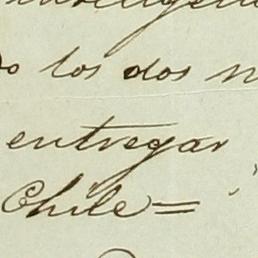 los dos
entregar
Chile =